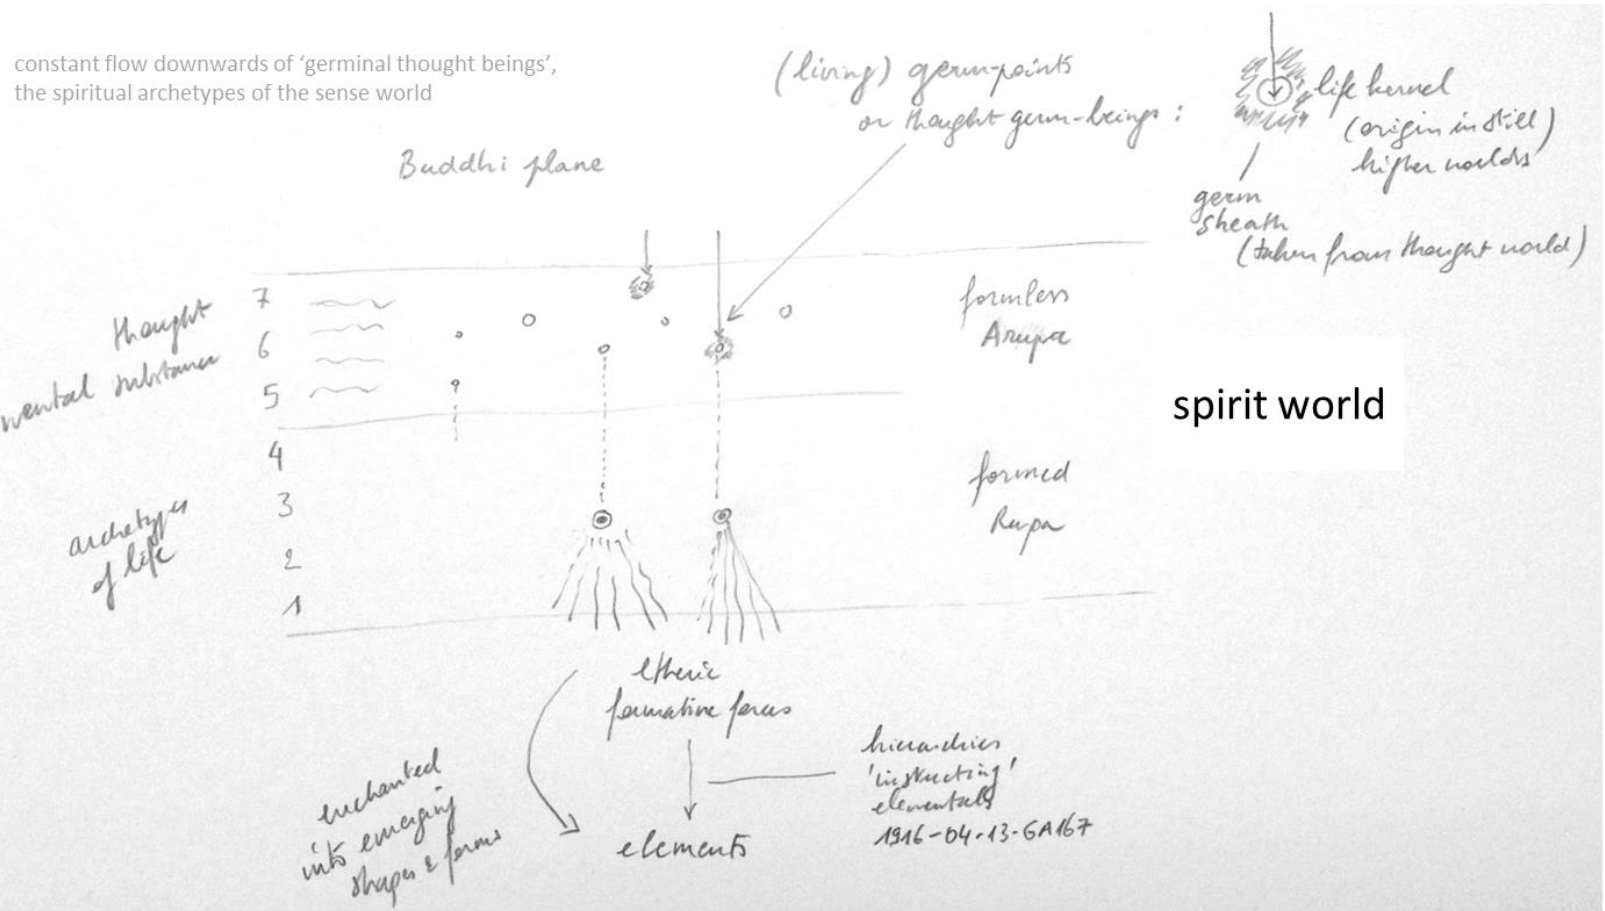 constant flow downwards of ‘germinal thought beings’,
the spiritual archetypes of the sense world
(living) germ-points
or thought germ-beings :
life kernel
(origin in still
higher worlds)
germ
sheath
(taken from thought world)
Buddhi plane
thought
mental substance
7
6
5
formless
Arupa
spirit world
archetypes
of life
4
3
2
1
formed
Rupa
etheric
formative forces
enchanted
into emerging
shapes & forms
elements
hierarchies
'instructing'
elementals
1916-04-13-GA167